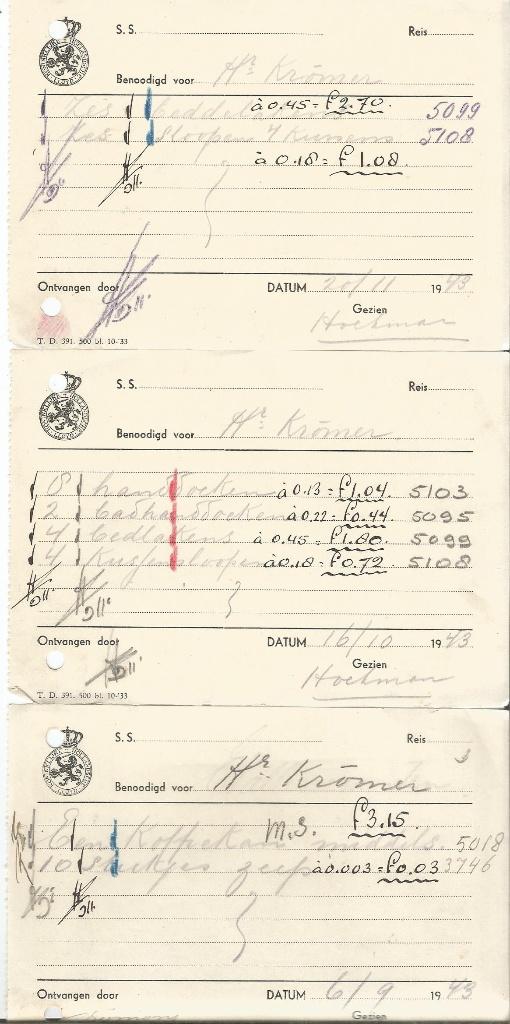 S. S. Reis
Benoodigd voor Hr. Krömer
Zes beddelakens à 0.45 = f 2.70. 5099
Zes sloopen 4 Kussens 5108
à 0.18 = f 1.08.
Ontvangen door DATUM 20/11 1943
Gezien
T. D. 391. 500 bl. 10-'33
S. S. Reis
Benoodigd voor Hr. Krömer
8 handdoeken à 0.13 = f 1.04. 5103
2 badhanddoeken à 0.22 = f 0.44. 5095
4 bedlakens à 0.45 = f 1.80. 5099
4 Kussensloopen à 0.18 = f 0.72. 5108
Ontvangen door DATUM 16/10 1943
Gezien
T. D. 391. 500 bl. 10-'33
S. S. Reis
Benoodigd voor Hr. Krömer
M.S. f 3.15.
Een Koffiekan middels. 5018
10 stukjes zeep à 0.003 = f 0.03 3746
Ontvangen door DATUM 6/9 1943
Gezien